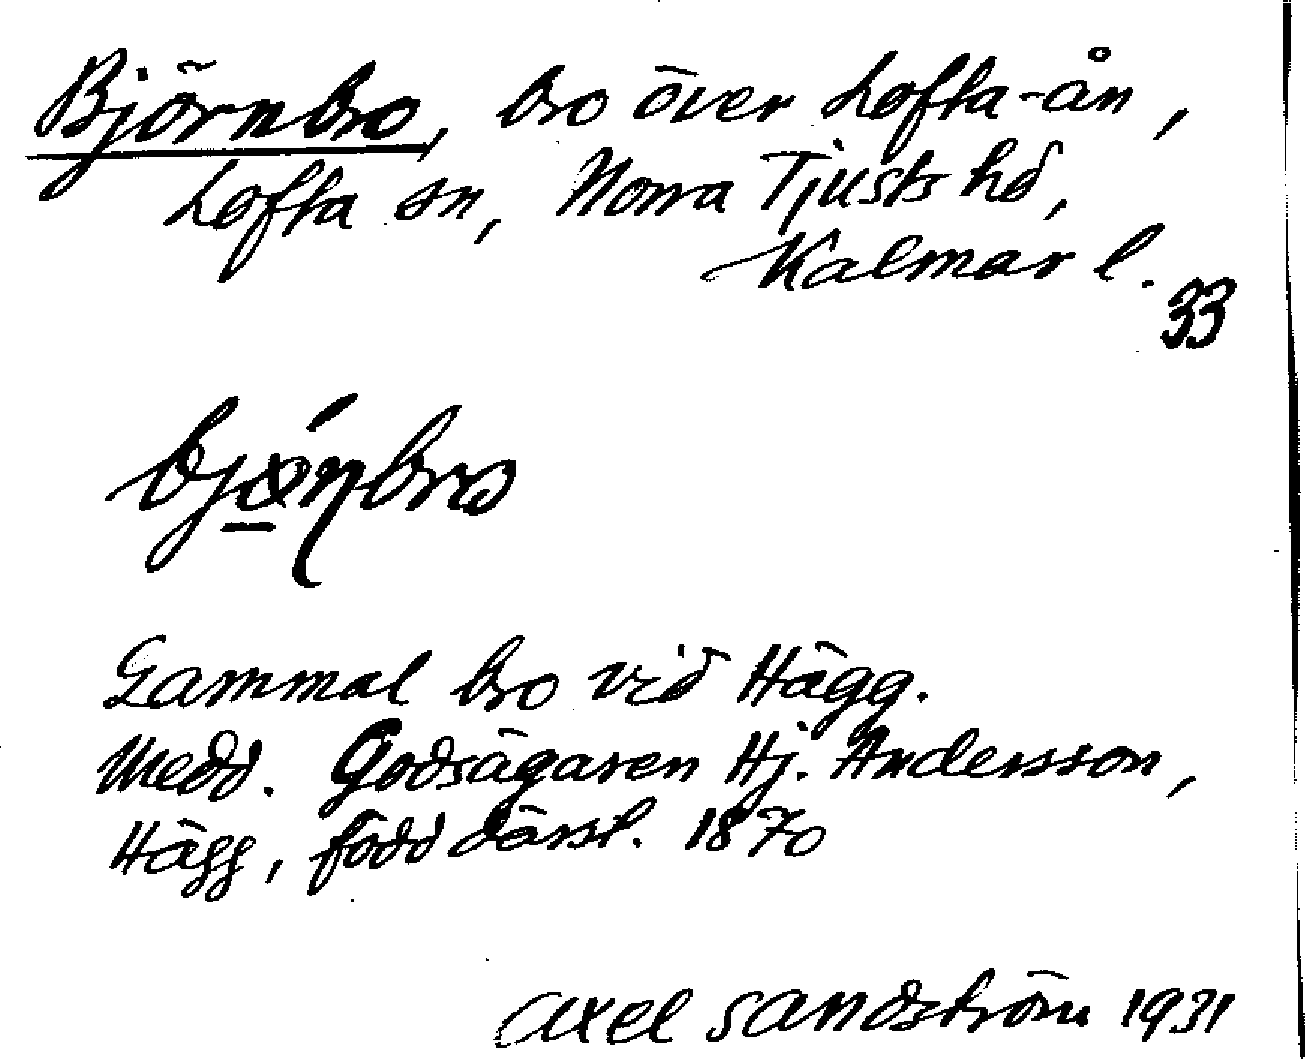 Björnbro, bro över Lofta-ån,
Lofta sn, Norra Tjusts hd,
Kalmar l.
33
Gammal bro vid Hägg.
Medd. Godsägaren Hj. Andersson,
Hägg, född därst. 1870
Axel Sandström 1931